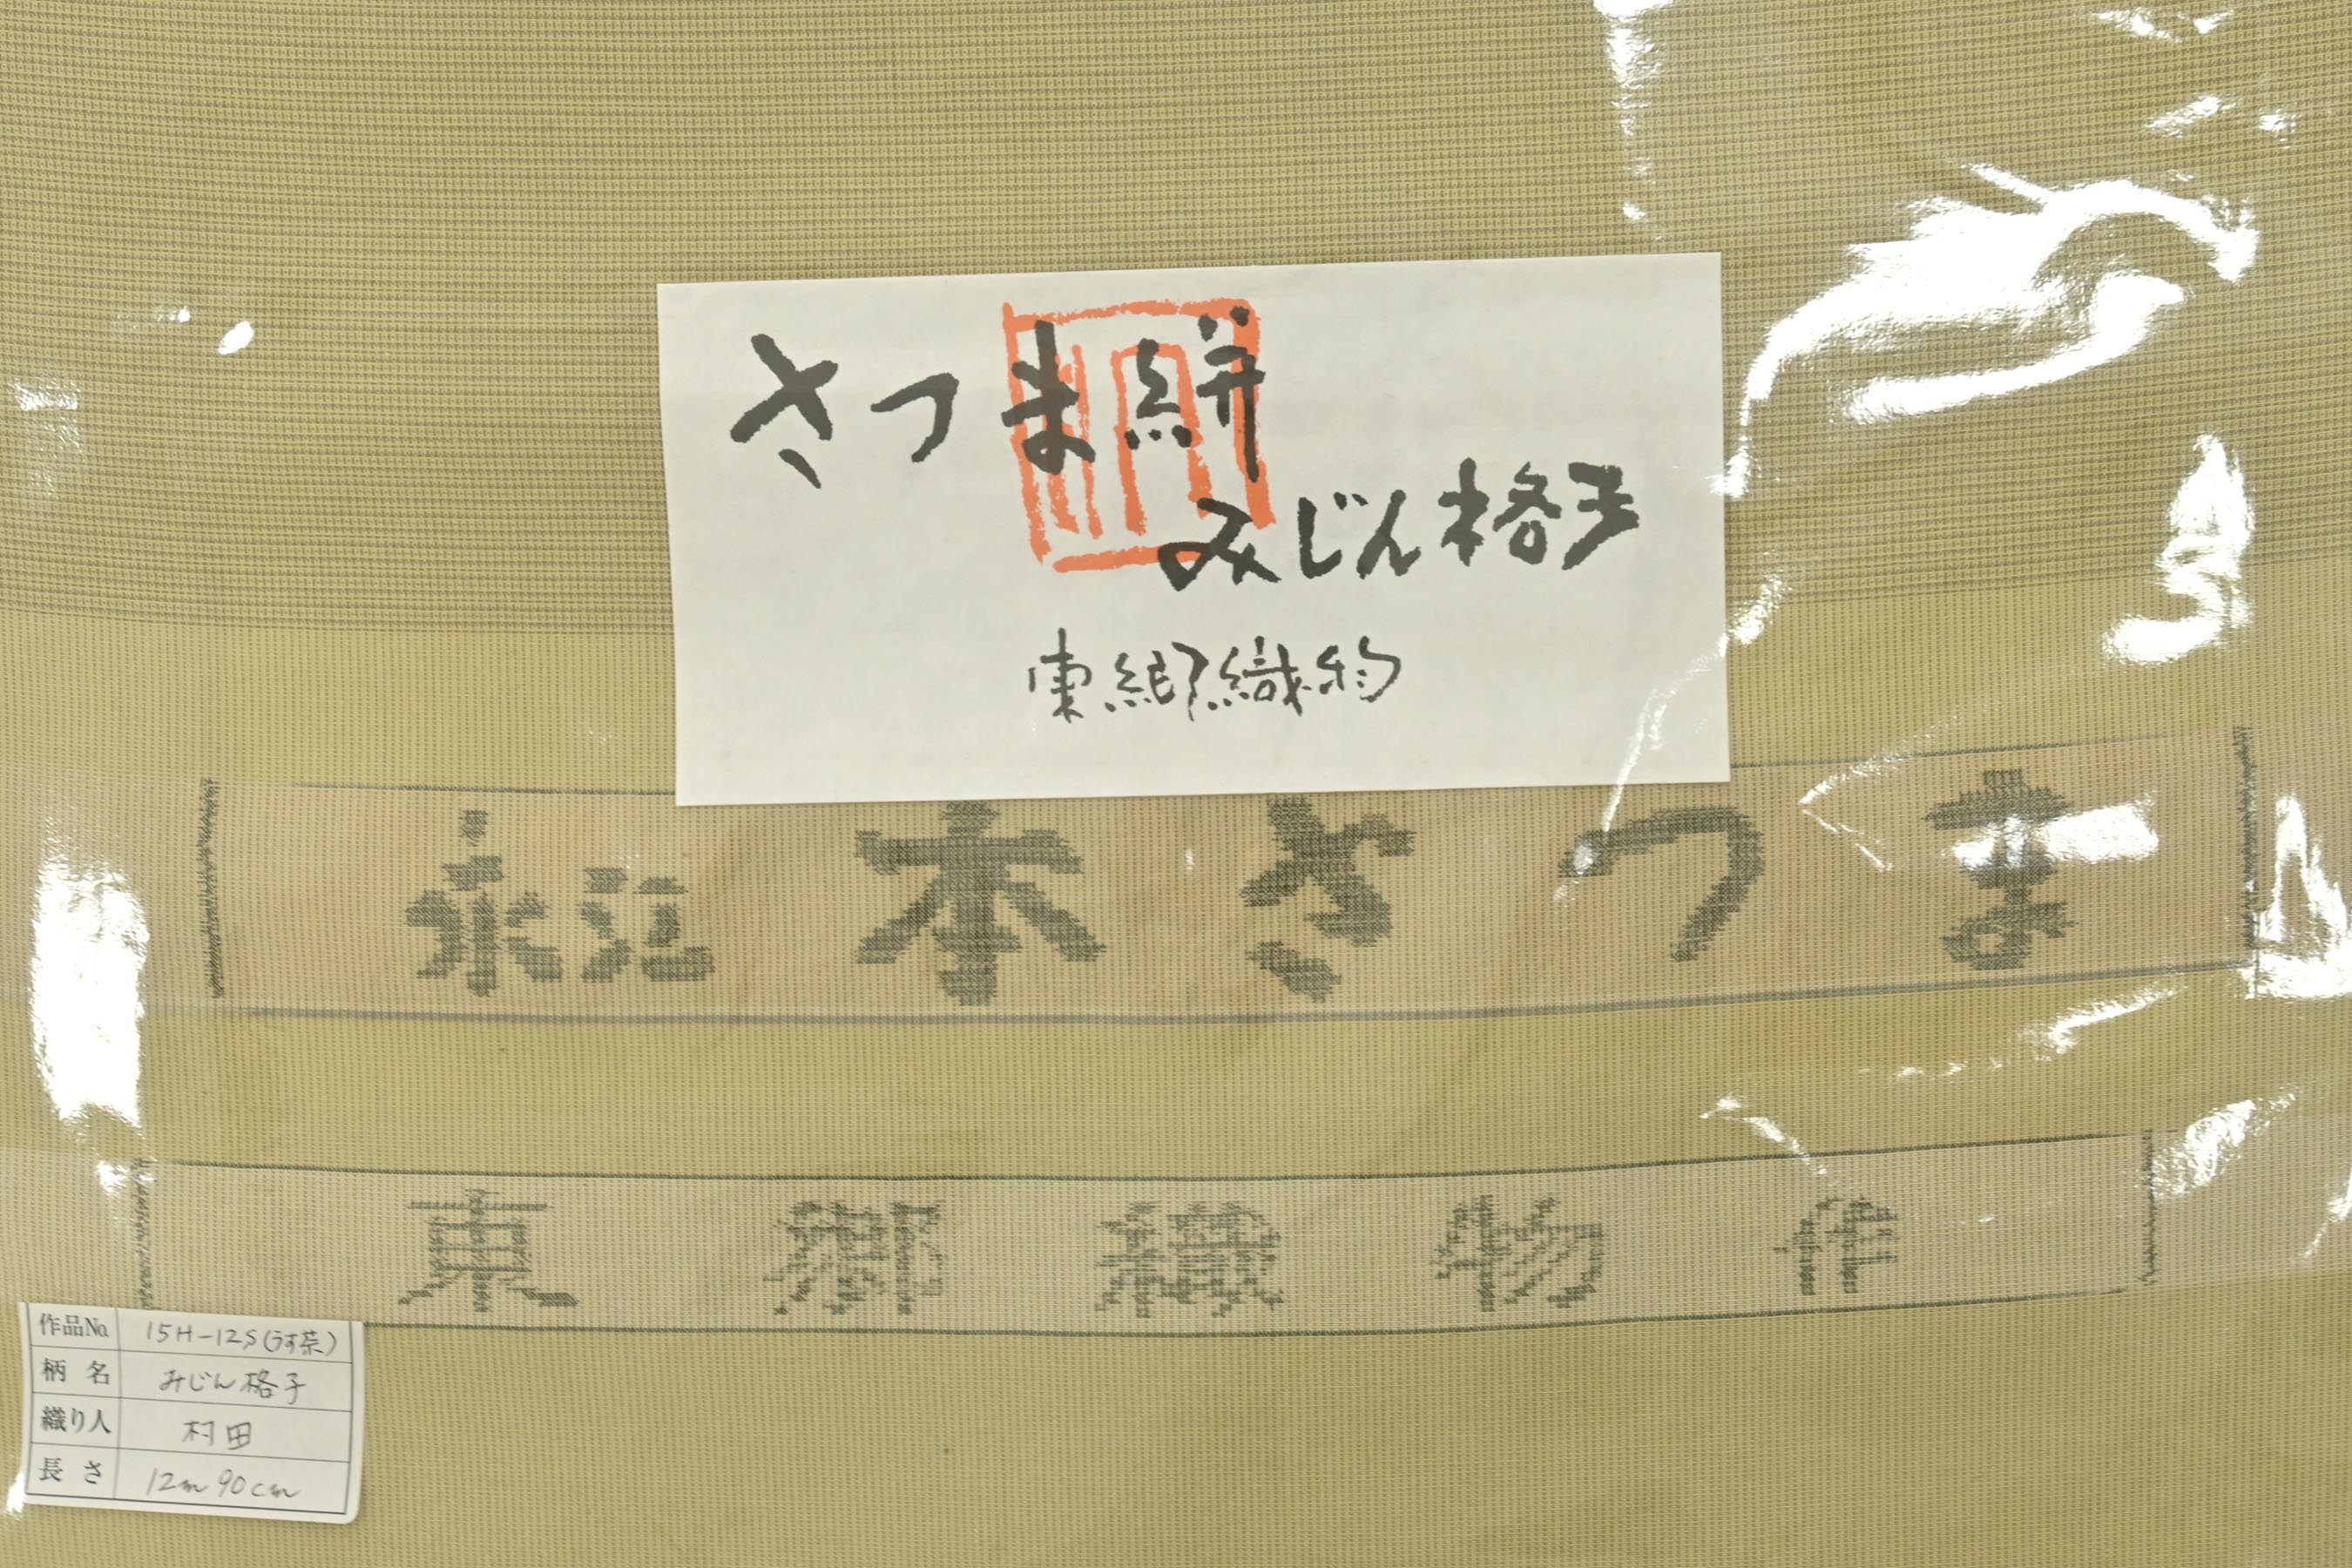 さつま絣
みじん格子
東郷織物
永江 本さつま
東郷織物作
作品No. 15H-12S(うす茶)
柄名 みじん格子
織り人 村田
長さ 12m90cm